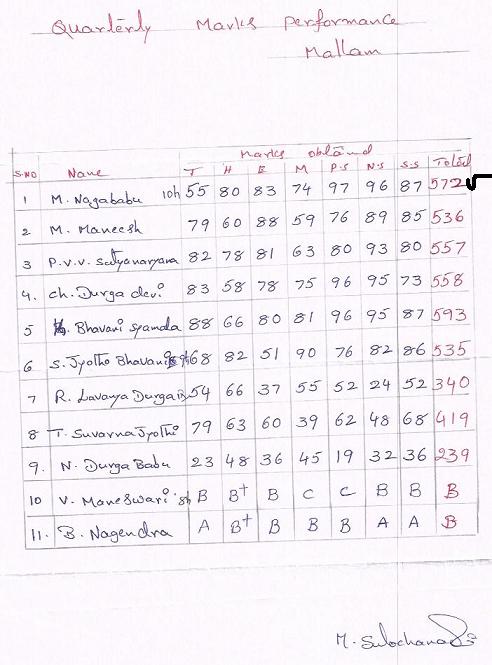 Quarterly Marks Performance
Mallam
Marks obtaind
S.NO Name T H E M P.S N.S S.S Total
1 M. Nagababu 10h 55 80 83 74 97 96 87 572
2 M. Maneesh 79 60 88 59 76 89 85 536
3 P.V.V. Satyanaryana 82 78 81 63 80 93 80 557
4. Ch. Durga devi 83 58 78 75 96 95 73 558
5 Bhavani Syamala 88 66 80 81 96 95 87 593
6 S. Jyothi Bhavani 68 82 51 90 76 82 86 535
7 R. Lavanya Durga 54 66 37 55 52 24 52 340
8 T. Suvarna Jyothi 79 63 60 39 62 48 68 419
9. N. Durga Babu 23 48 36 45 19 32 36 239
10 V. Maneswari 8h B B+ B C C B B B
11. B. Nagendra A B+ B B B A A B
M. Sulochana